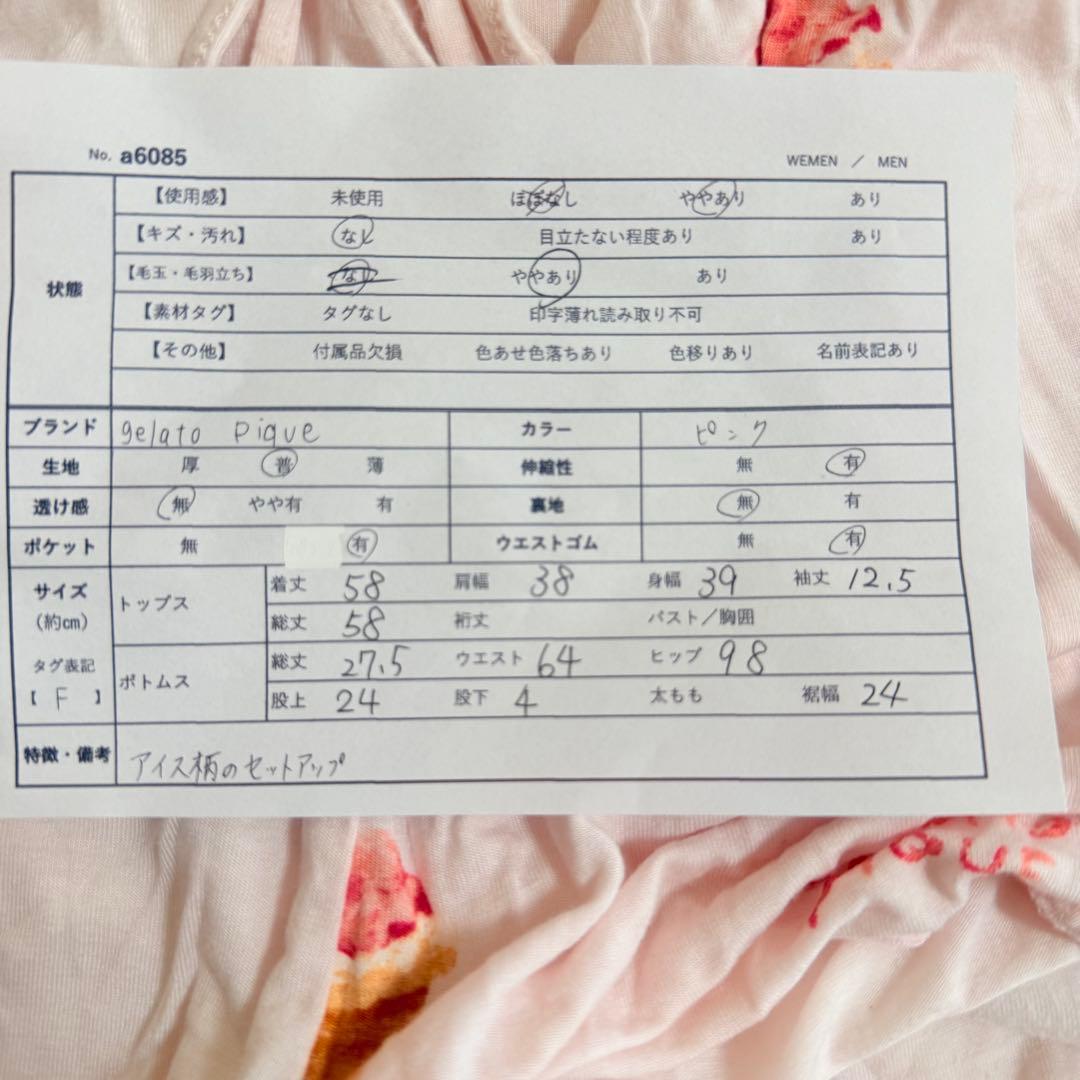 No. a6085 WEMEN / MEN
状態
【使用感】 未使用 ほぼなし ややあり あり
【キズ・汚れ】 なし 目立たない程度あり あり
【毛玉・毛羽立ち】 なし ややあり あり
【素材タグ】 タグなし 印字薄れ読み取り不可
【その他】 付属品欠損 色あせ色落ちあり 色移りあり 名前表記あり
ブランド gelato pique カラー ピンク
生地 厚 普 薄 伸縮性 無 有
透け感 無 やや有 有 裏地 無 有
ポケット 無 有 ウエストゴム 無 有
サイズ
(約cm)
タグ表記
【 F 】
トップス
着丈 58 肩幅 38 身幅 39 袖丈 12.5
総丈 58 裄丈 バスト/胸囲
ボトムス
総丈 27.5 ウエスト 64 ヒップ 98
股上 24 股下 4 太もも 裾幅 24
特徴・備考 アイス柄のセットアップ
QUE